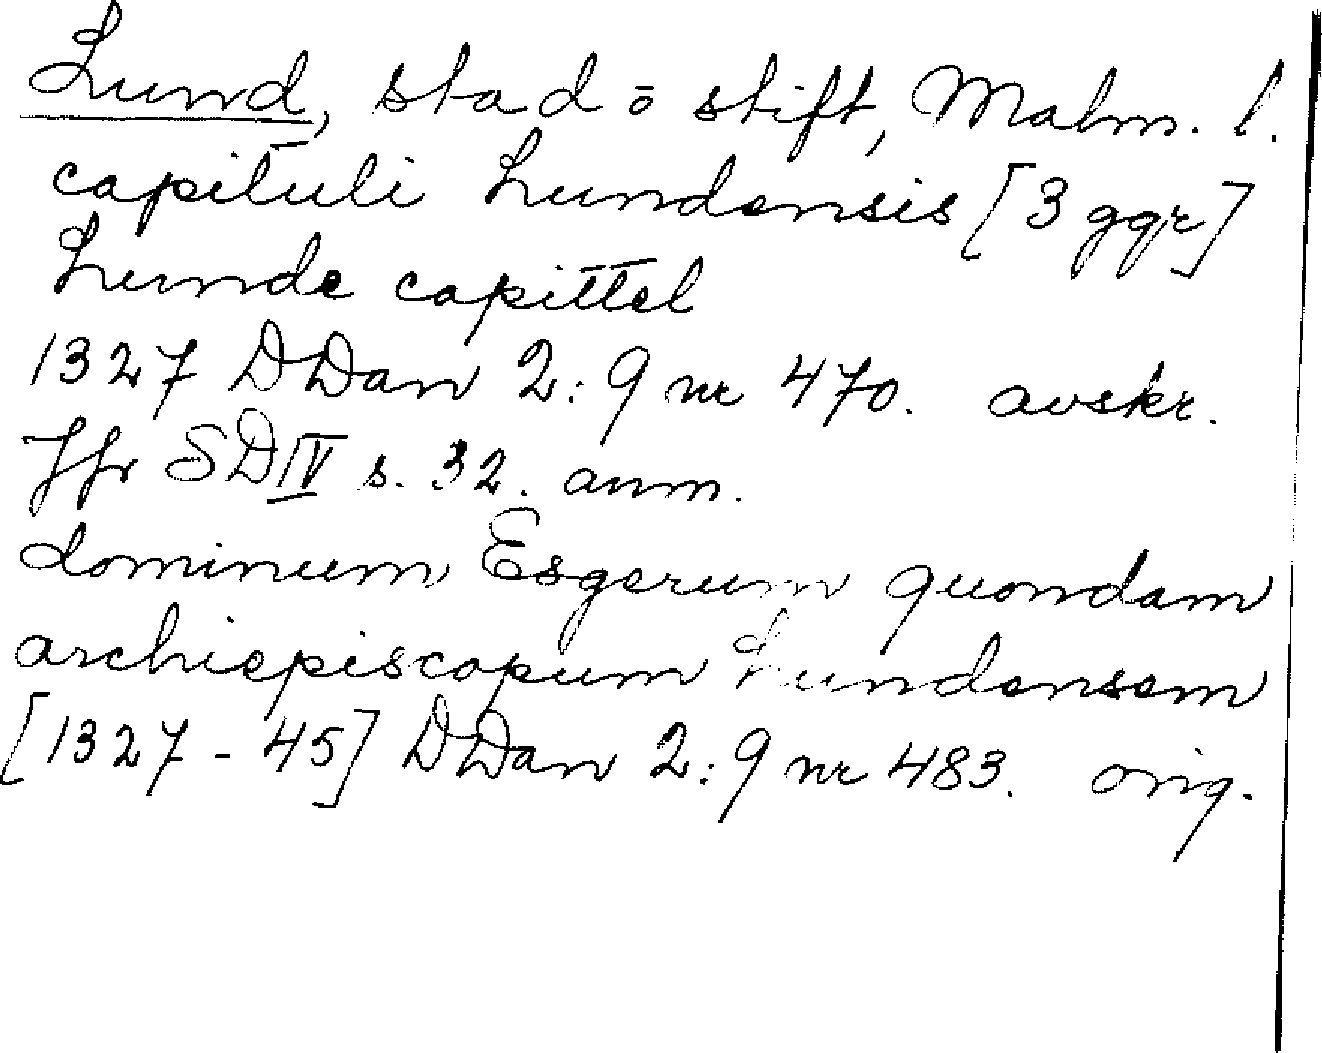 Lund, stad o stift, Malm. l.
capituli Lundensis [3 ggr]
Lunde capittel
1327 DDan 2:9 nr 470. avskr.
Jfr SD IV s. 32. anm.
dominum Esgerum quondam
archiepiscopum Lundensem
[1327-45] DDan 2:9 nr 483. orig.